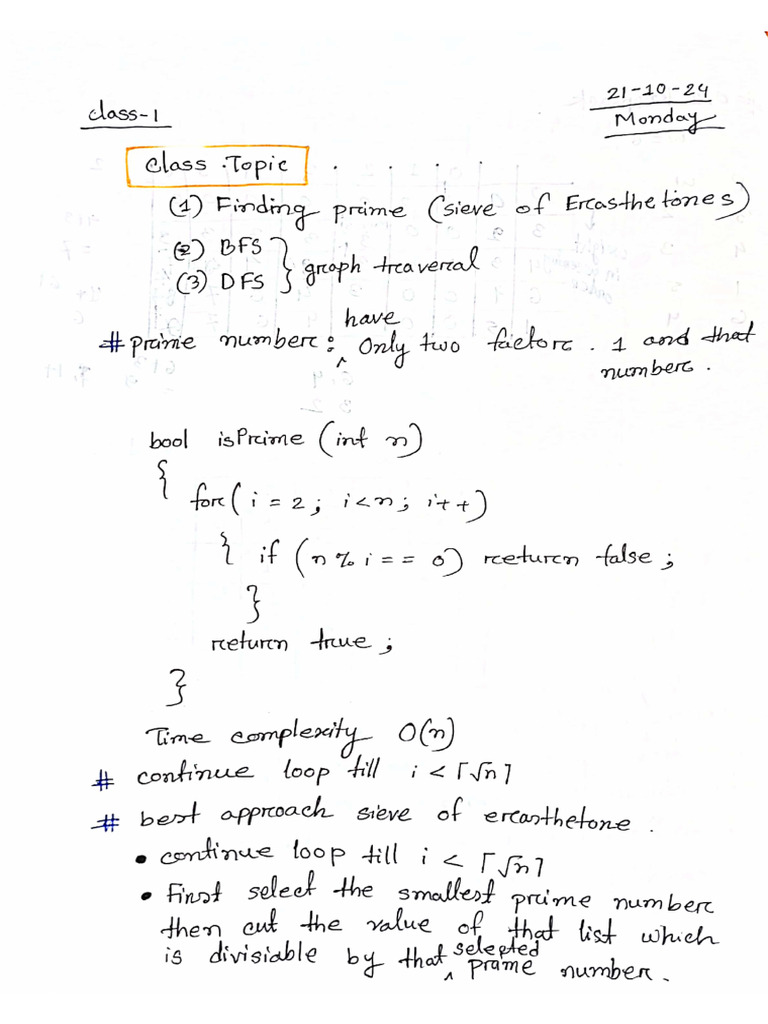 21-10-24
Class-1
Monday
Class Topic . . . . .
(1) Finding prime (sieve of Ercasthetones)
(2) BFS
(3) DFS } graph traveral
# prime number: have Only two factors. 1 and that
number.
bool isPrime (int n)
{
for( i = 2; i<n; i++)
{ if (n % i == 0) return false;
}
return true;
}
Time complexity O(n)
# continue loop till i < ⌈√n⌉
# best approach sieve of ercasthetone.
• continue loop till i < ⌈√n⌉
• First select the smallest prime number
then cut the value of that list which
is divisiable by that selected prame number.